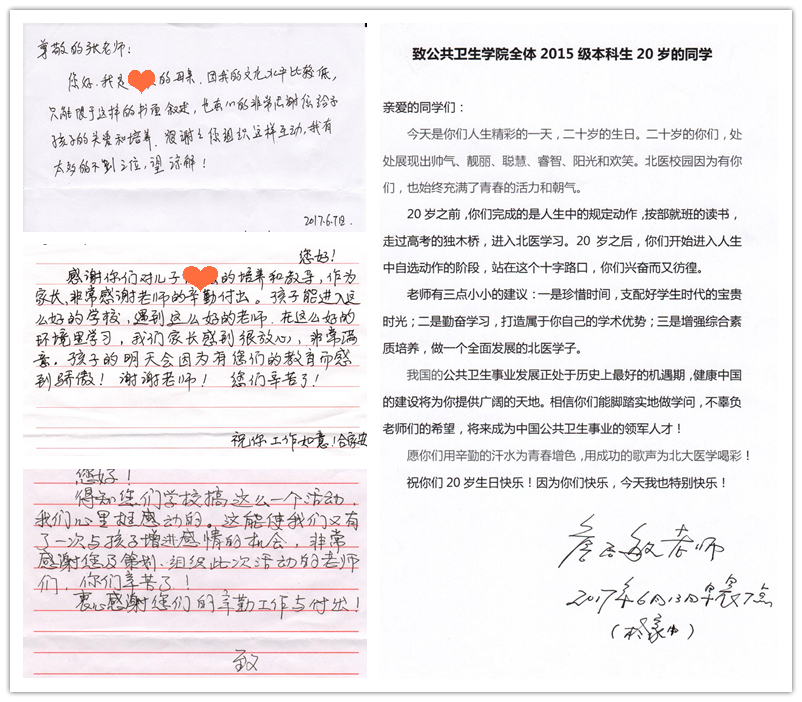 尊敬的张老师：
您好，我是的母亲，因我的文化水平比较低，
只能限于这样的书面叙述，也衷心的非常感谢你给予
孩子的关爱和培养，很谢之你组织这样互动，我有
太多的不到之位，望谅解！
2017.6.7日
您好！
感谢你们对儿子的培养和教导，作为
家长，非常感谢老师的辛勤付出。孩子能进入这
么好的学校，遇到这么好的老师，在这么好的
环境里学习，我们家长感到很放心，非常满
意。孩子的明天会因为有您们的教育而感
到骄傲！谢谢老师！您们辛苦了！
祝你工作如意！合家安
您好！
得知您们学校搞这么一个活动，
我们心里挺感动的。这能使我们又有
了一次与孩子增进感情的机会，非常
感谢您及策划、组织此次活动的老师
们，你们辛苦了！
衷心感谢您们的辛勤工作与付出！
致
致公共卫生学院全体 2015 级本科生 20 岁的同学
亲爱的同学们：
今天是你们人生精彩的一天，二十岁的生日。二十岁的你们，处
处展现出帅气、靓丽、聪慧、睿智、阳光和欢笑。北医校园因为有你
们，也始终充满了青春的活力和朝气。
20 岁之前，你们完成的是人生中的规定动作，按部就班的读书，
走过高考的独木桥，进入北医学习。20 岁之后，你们开始进入人生
中自选动作的阶段，站在这个十字路口，你们兴奋而又彷徨。
老师有三点小小的建议：一是珍惜时间，支配好学生时代的宝贵
时光；二是勤奋学习，打造属于你自己的学术优势；三是增强综合素
质培养，做一个全面发展的北医学子。
我国的公共卫生事业发展正处于历史上最好的机遇期，健康中国
的建设将为你提供广阔的天地。相信你们能脚踏实地做学问，不辜负
老师们的希望，将来成为中国公共卫生事业的领军人才！
愿你们用辛勤的汗水为青春增色，用成功的歌声为北大医学喝彩！
祝你们 20 岁生日快乐！因为你们快乐，今天我也特别快乐！
老师
2017年6月13日早晨7点